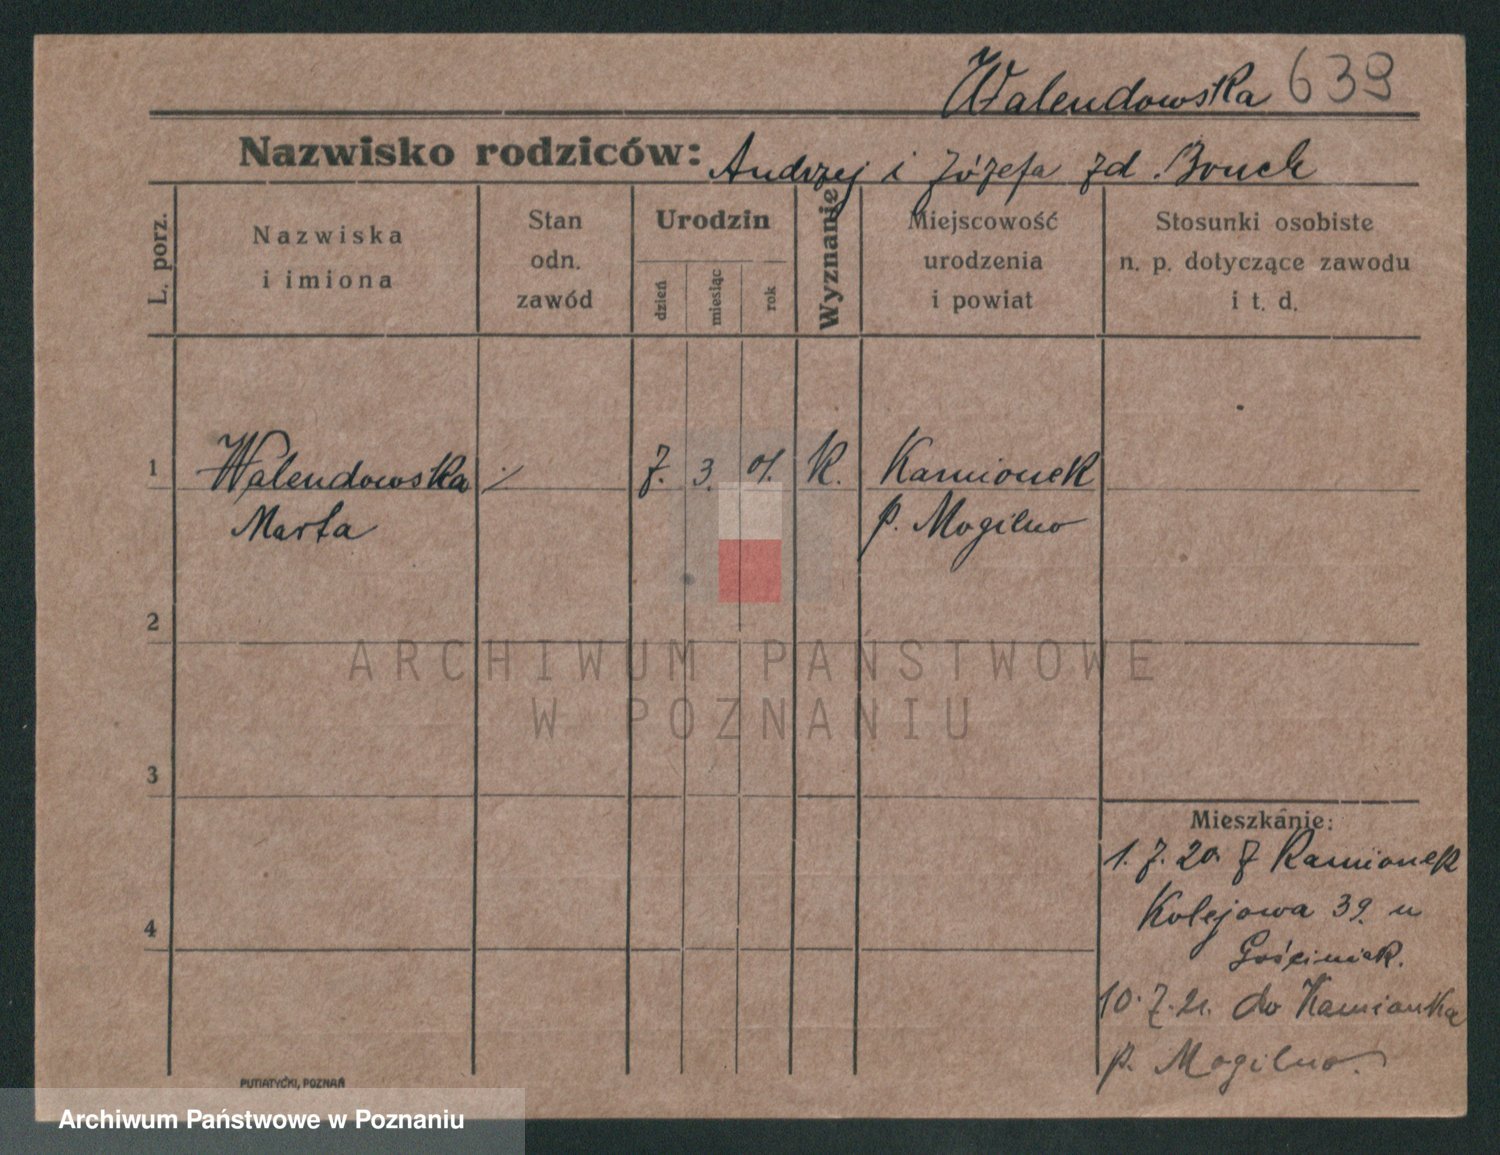 Walendowska 639
Nazwisko rodziców: Andrzej i Józefa zd.
L. porz.
Nazwiska
i imiona
Stan
odn.
zawód
Urodzin
dzień
miesiąc
rok
Wyznanie
Miejscowość
urodzenia
i powiat
Stosunki osobiste
n. p. dotyczące zawodu
i t. d.
1 Walendowska ·/· 7. 3. 01. K. Kamionek
Marta p. Mogilno
2
ARCHIWUM PAŃSTWOWE
W POZNANIU
3
Mieszkanie:
1. 7. 20. z Kamionek
4
Kolejowa 39. u
Gościniak.
10. 7. 21. do Kamionka
p. Mogilno.
PUTIATYCKI, POZNAŃ
Archiwum Państwowe w Poznaniu